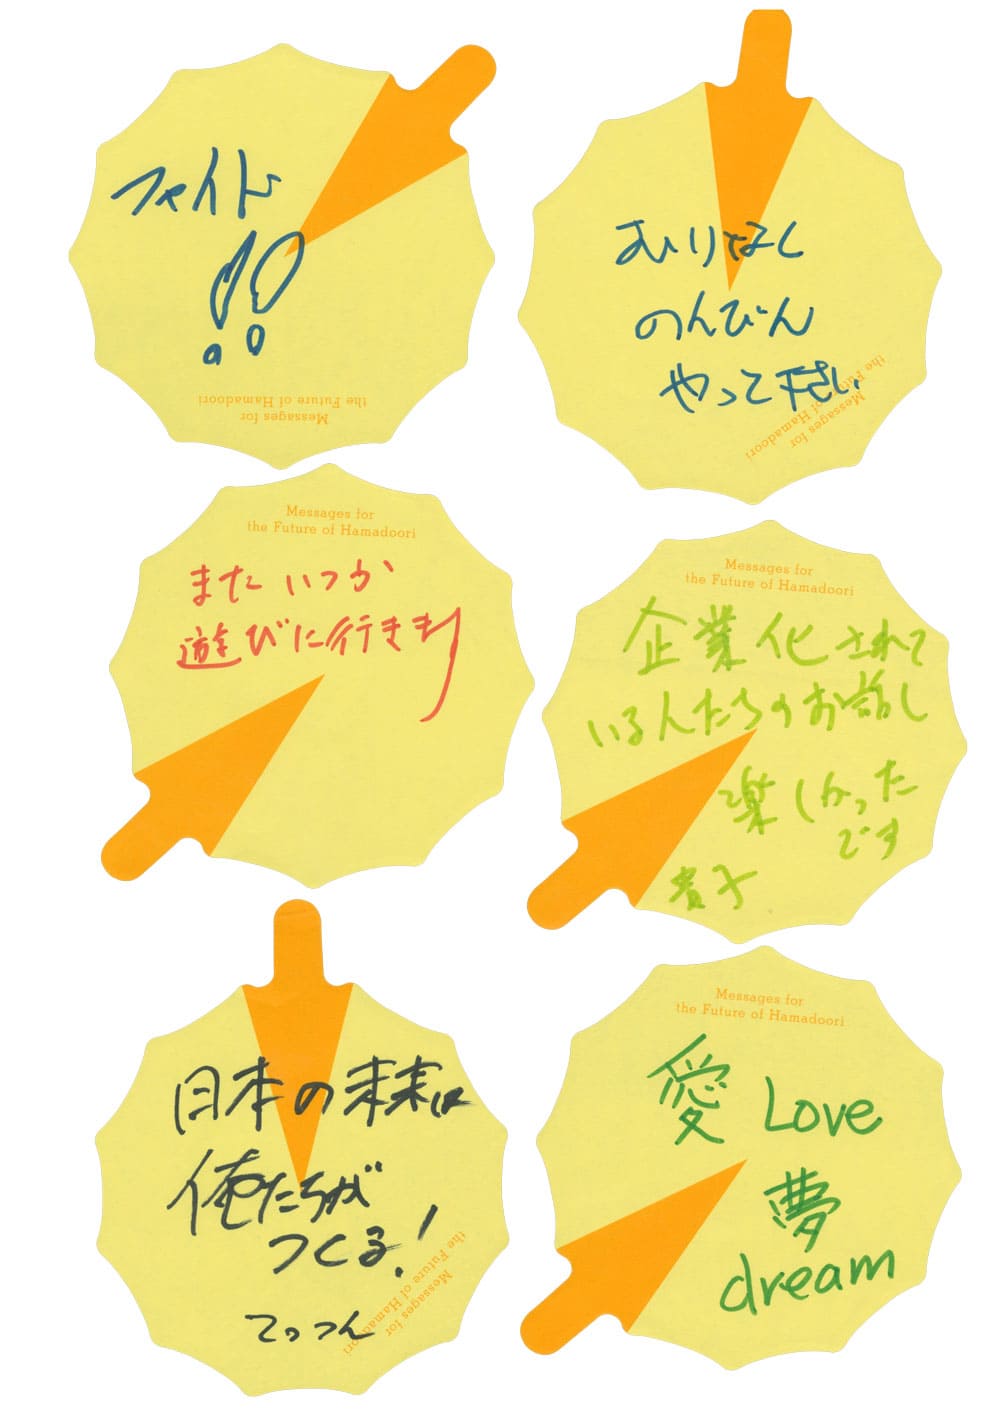 ファイト
!!
Messages for
the Future of Hamadoori
むりなし
のんびん
やって下さい
Messages for
the Future of Hamadoori
Messages for
the Future of Hamadoori
また いつか
遊びに行きます
Messages for
the Future of Hamadoori
企業化されて
いる人たちのお話し
楽しかった
です
貴子
日本の未来は
俺たちが
つくる!
Messages for
the Future of Hamadoori
てっつん
Messages for
the Future of Hamadoori
愛 Love
夢
dream